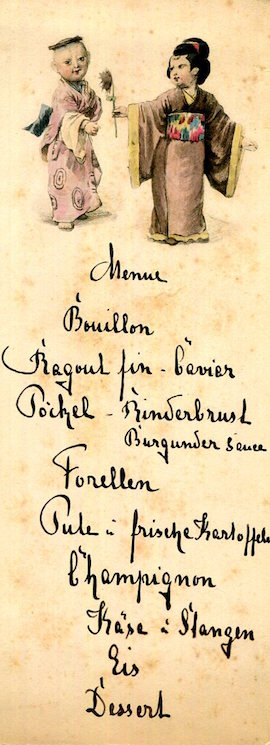 Menue
Bouillon
Ragout fin - Cavier
Pöckel - Rinderbrust
Burgunder Sauce
Forellen
Pute u frische Kartoffeln
Champignon
Käse u Stangen
Eis
Dessert